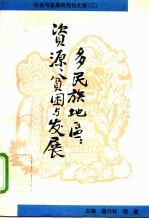 社会与发展研究论文集(三)
多民族地區:
資源、貧困与发展
主编 潘乃谷 周星